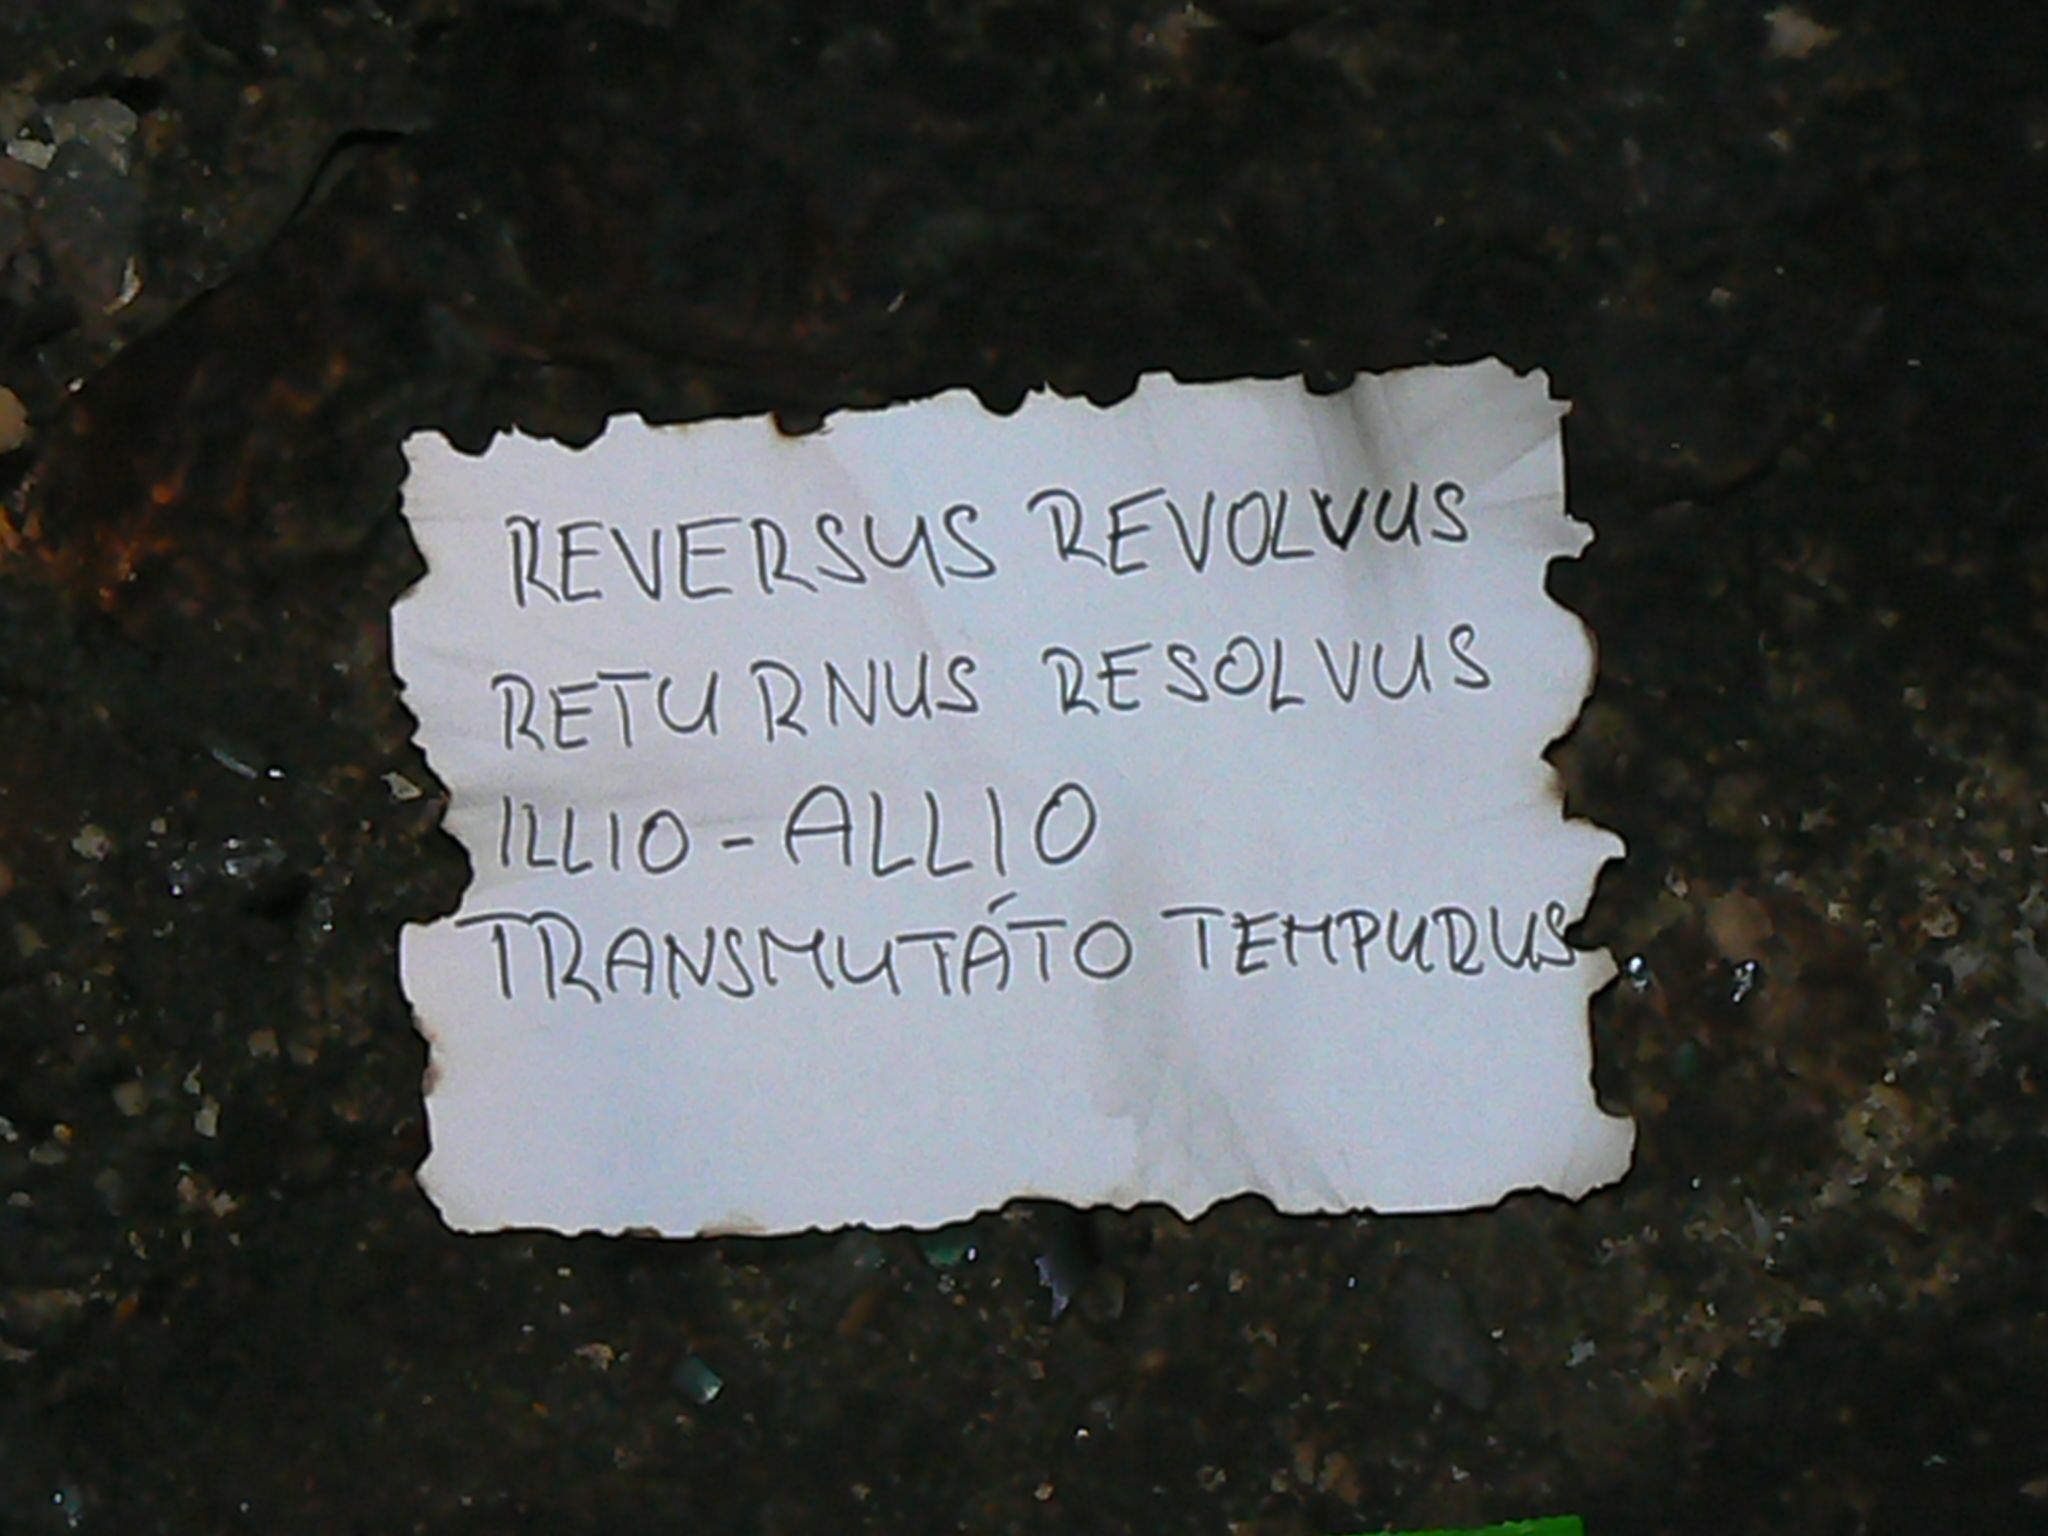 REVERSUS REVOLVUS
RETURNUS RESOLVUS
ILLIO - ALLIO
TRANSMUTÁTO TEMPURUS